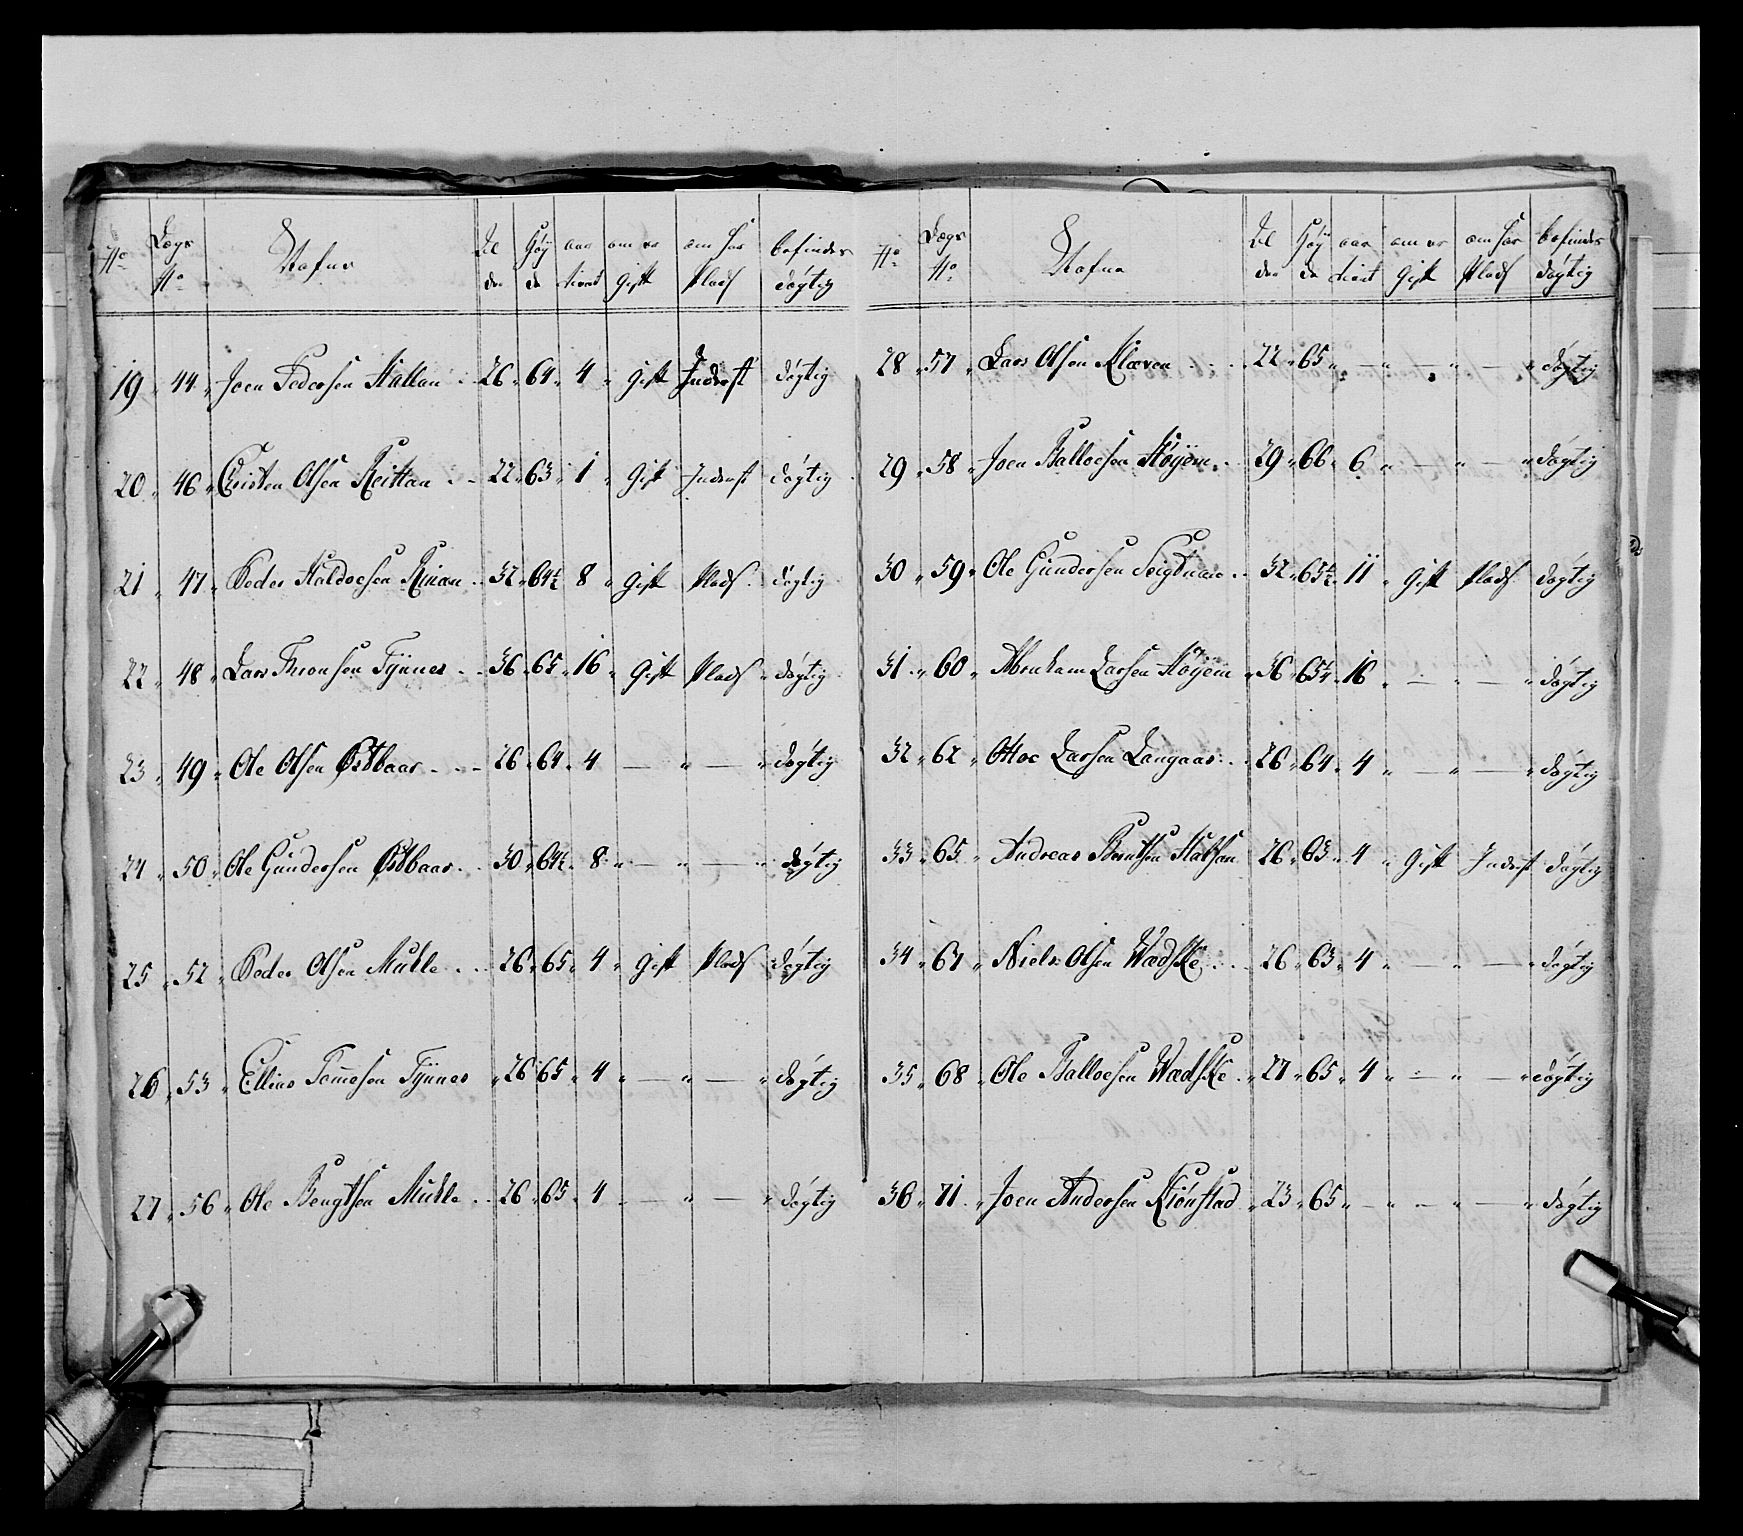 No Lægs No Nafne Al der Høy de aar tient om er Gift om har Plads befindes døgtig
19 44 Joen Pedersen Hallan 26 64 4 Gift Inderst døgtig
20 46 Christen Olsen Reittan 22 63 1 Gift Inderst døgtig
21 47 Peder Haldoesen Rinan 32 64½ 8 Gift Plads døgtig
22 48 Lars Thronsen Tynnes 36 65 16 Gift Plads døgtig
23 49 Ole Olsen Østbaar 26 64 4 — " — " døgtig
24 50 Ole Gundersen Østbaar 30 64½ 8 " — " — " døgtig
25 52 Peder Olsen Mulle 26 65 4 Gift Plads døgtig
26 53 Ellias Tomesen Tynnes 26 65 4 " — " — " døgtig
27 56 Ole Bengtsen Mulle 26 65 4 " — " — " døgtig
No Lægs No Nafne Al der Høy de aar tient om er Gift om har Plads befindes døgtig
28 57 Lars Olsen Klæven 22 65 " — " — " — " døgtig
29 58 Joen Balloesen Høyem 29 66 6 " — " — " døgtig
30 59 Ole Gundersen 32 65½ 11 Gift Plads døgtig
31 60 Abraham Larsen Høyem 36 65½ 16 " — " — " døgtig
32 62 Ottoe Larsen Langaas 26 64 4 " — " — " døgtig
33 65 Andreas Berntsen 26 63 4 Gift Inderst døgtig
34 67 Niels Olsen Wædske 26 63 4 " — " — " døgtig
35 68 Ole Balloesen Wædske 27 65 4 " — " — " døgtig
36 71 Joen Andersen Kiønstad 23 65 " — " — " — " døgtig